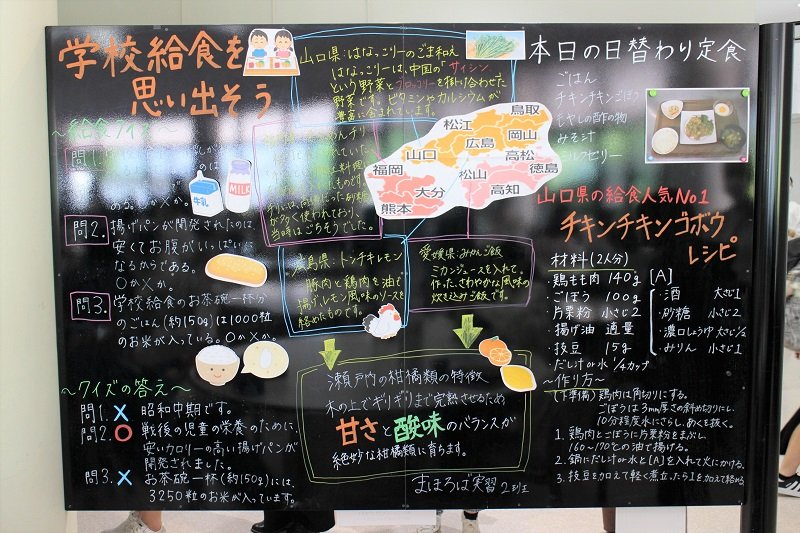 学校給食を
思い出そう
～給食クイズ～
問1.
牛乳
MILK
○か×か。
問2. 揚げパンが開発されたのは、
安くてお腹がいっぱいに
なるからである。
○か×か。
問3. 学校給食のお茶碗一杯分
のごはん(約150g)は1000粒
のお米が入っている。○か×か。
～クイズの答え～
問1. × 昭和中期です。
問2. ○ 戦後の児童の栄養のために、
安いカロリーの高い揚げパンが
開発されました。
問3. × お茶碗一杯(約150g)には、
3250粒のお米が入っています。
山口県:はなっこりーのごま和え
はなっこりーは、中国の「サイシン」
という野菜とブロッコリーを掛け合わせた
野菜です。ビタミンやカルシウムが
豊富に含まれています。
が多く使われており、
当時はごちそうでした。
鳥取
松江
岡山
広島
山口
高松
徳島
福岡
松山
高知
大分
熊本
広島県:トンチキレモン
豚肉と鶏肉を油で
揚げ、レモン風味のソースを
絡めたものです。
愛媛県:みかんご飯
ミカンジュースを入れて
作った、さわやかな風味の
炊き込みご飯です。
瀬戸内の柑橘類の特徴
木の上でギリギリまで完熟させるため
甘さと酸味のバランスが
絶妙な柑橘類に育ちます。
まほろば実習 2班
本日の日替わり定食
ごはん
チキンチキンごぼう
もやしの酢の物
みそ汁
ミルクゼリー
山口県の給食人気No1
チキンチキンゴボウ
レシピ
材料(2人分)
・鶏もも肉 140g
・ごぼう 100g
・片栗粉 小さじ2
・揚げ油 適量
・枝豆 15g
・だし汁or水 1/4カップ
[A]
・酒 大さじ1
・砂糖 小さじ2
・濃口しょうゆ 大さじ1/2
・みりん 小さじ1
～作り方～
(下準備) 鶏肉は角切りにする。
ごぼうは3mm厚さの斜め切りにし、
10分程度水にさらし、あくを抜く。
1. 鶏肉とごぼうに片栗粉をまぶし、
160～170℃の油で揚げる。
2. 鍋にだし汁or水と[A]を入れて火にかける。
3. 枝豆を加えて軽く煮立ったら1を加えて絡める。